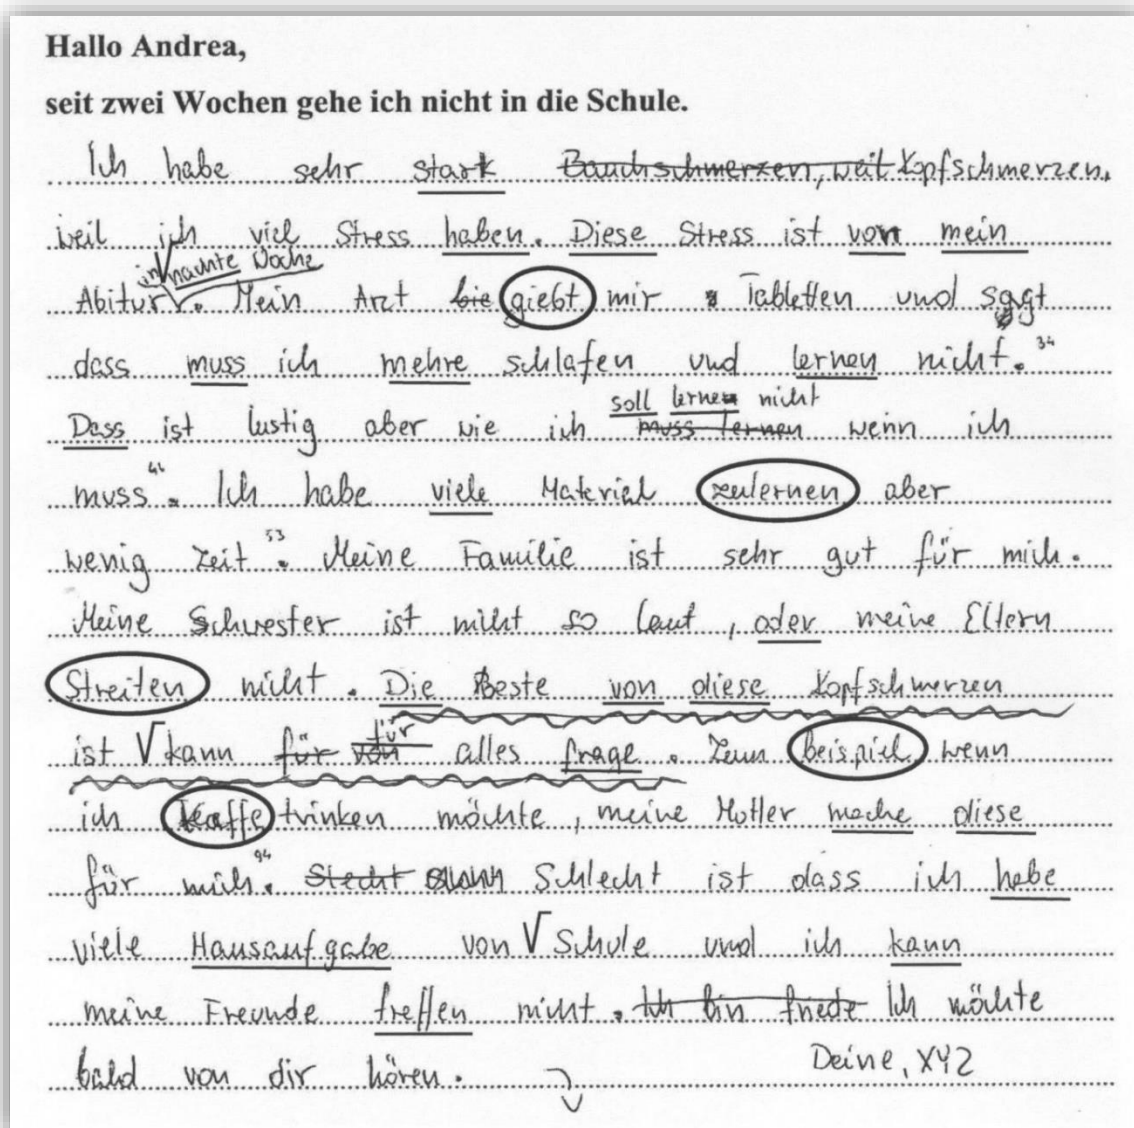 Hallo Andrea,
seit zwei Wochen gehe ich nicht in die Schule.
Ich habe sehr stark Bauchschmerzen, weil Kopfschmerzen,
weil ich viel Stress haben. Diese Stress ist von mein
in nächte Woche
Abitur. Mein Arzt bie giebt mir Tabletten und sagt
dass muss ich mehre schlafen und lernen nicht. 34
soll lernen nicht
Dass ist lustig aber wie ich muss lernen wenn ich
muss 44. Ich habe viele Material zulernen aber
wenig Zeit 53. Meine Familie ist sehr gut für mich.
Meine Schwester ist nicht so laut, oder meine Eltern
Streiten nicht. Die Beste von diese Kopfschmerzen
für
ist √ kann für von alles frage. Zum beispiel wenn
ich Kaffe trinken möchte, meine Mutter mache diese
für mich 94. Stecht Schlecht ist dass ich habe
viele Hausaufgabe von √ Schule und ich kann
meine Freunde treffen nicht. Ich bin Ich möchte
bald von dir hören.
Deine, XYZ